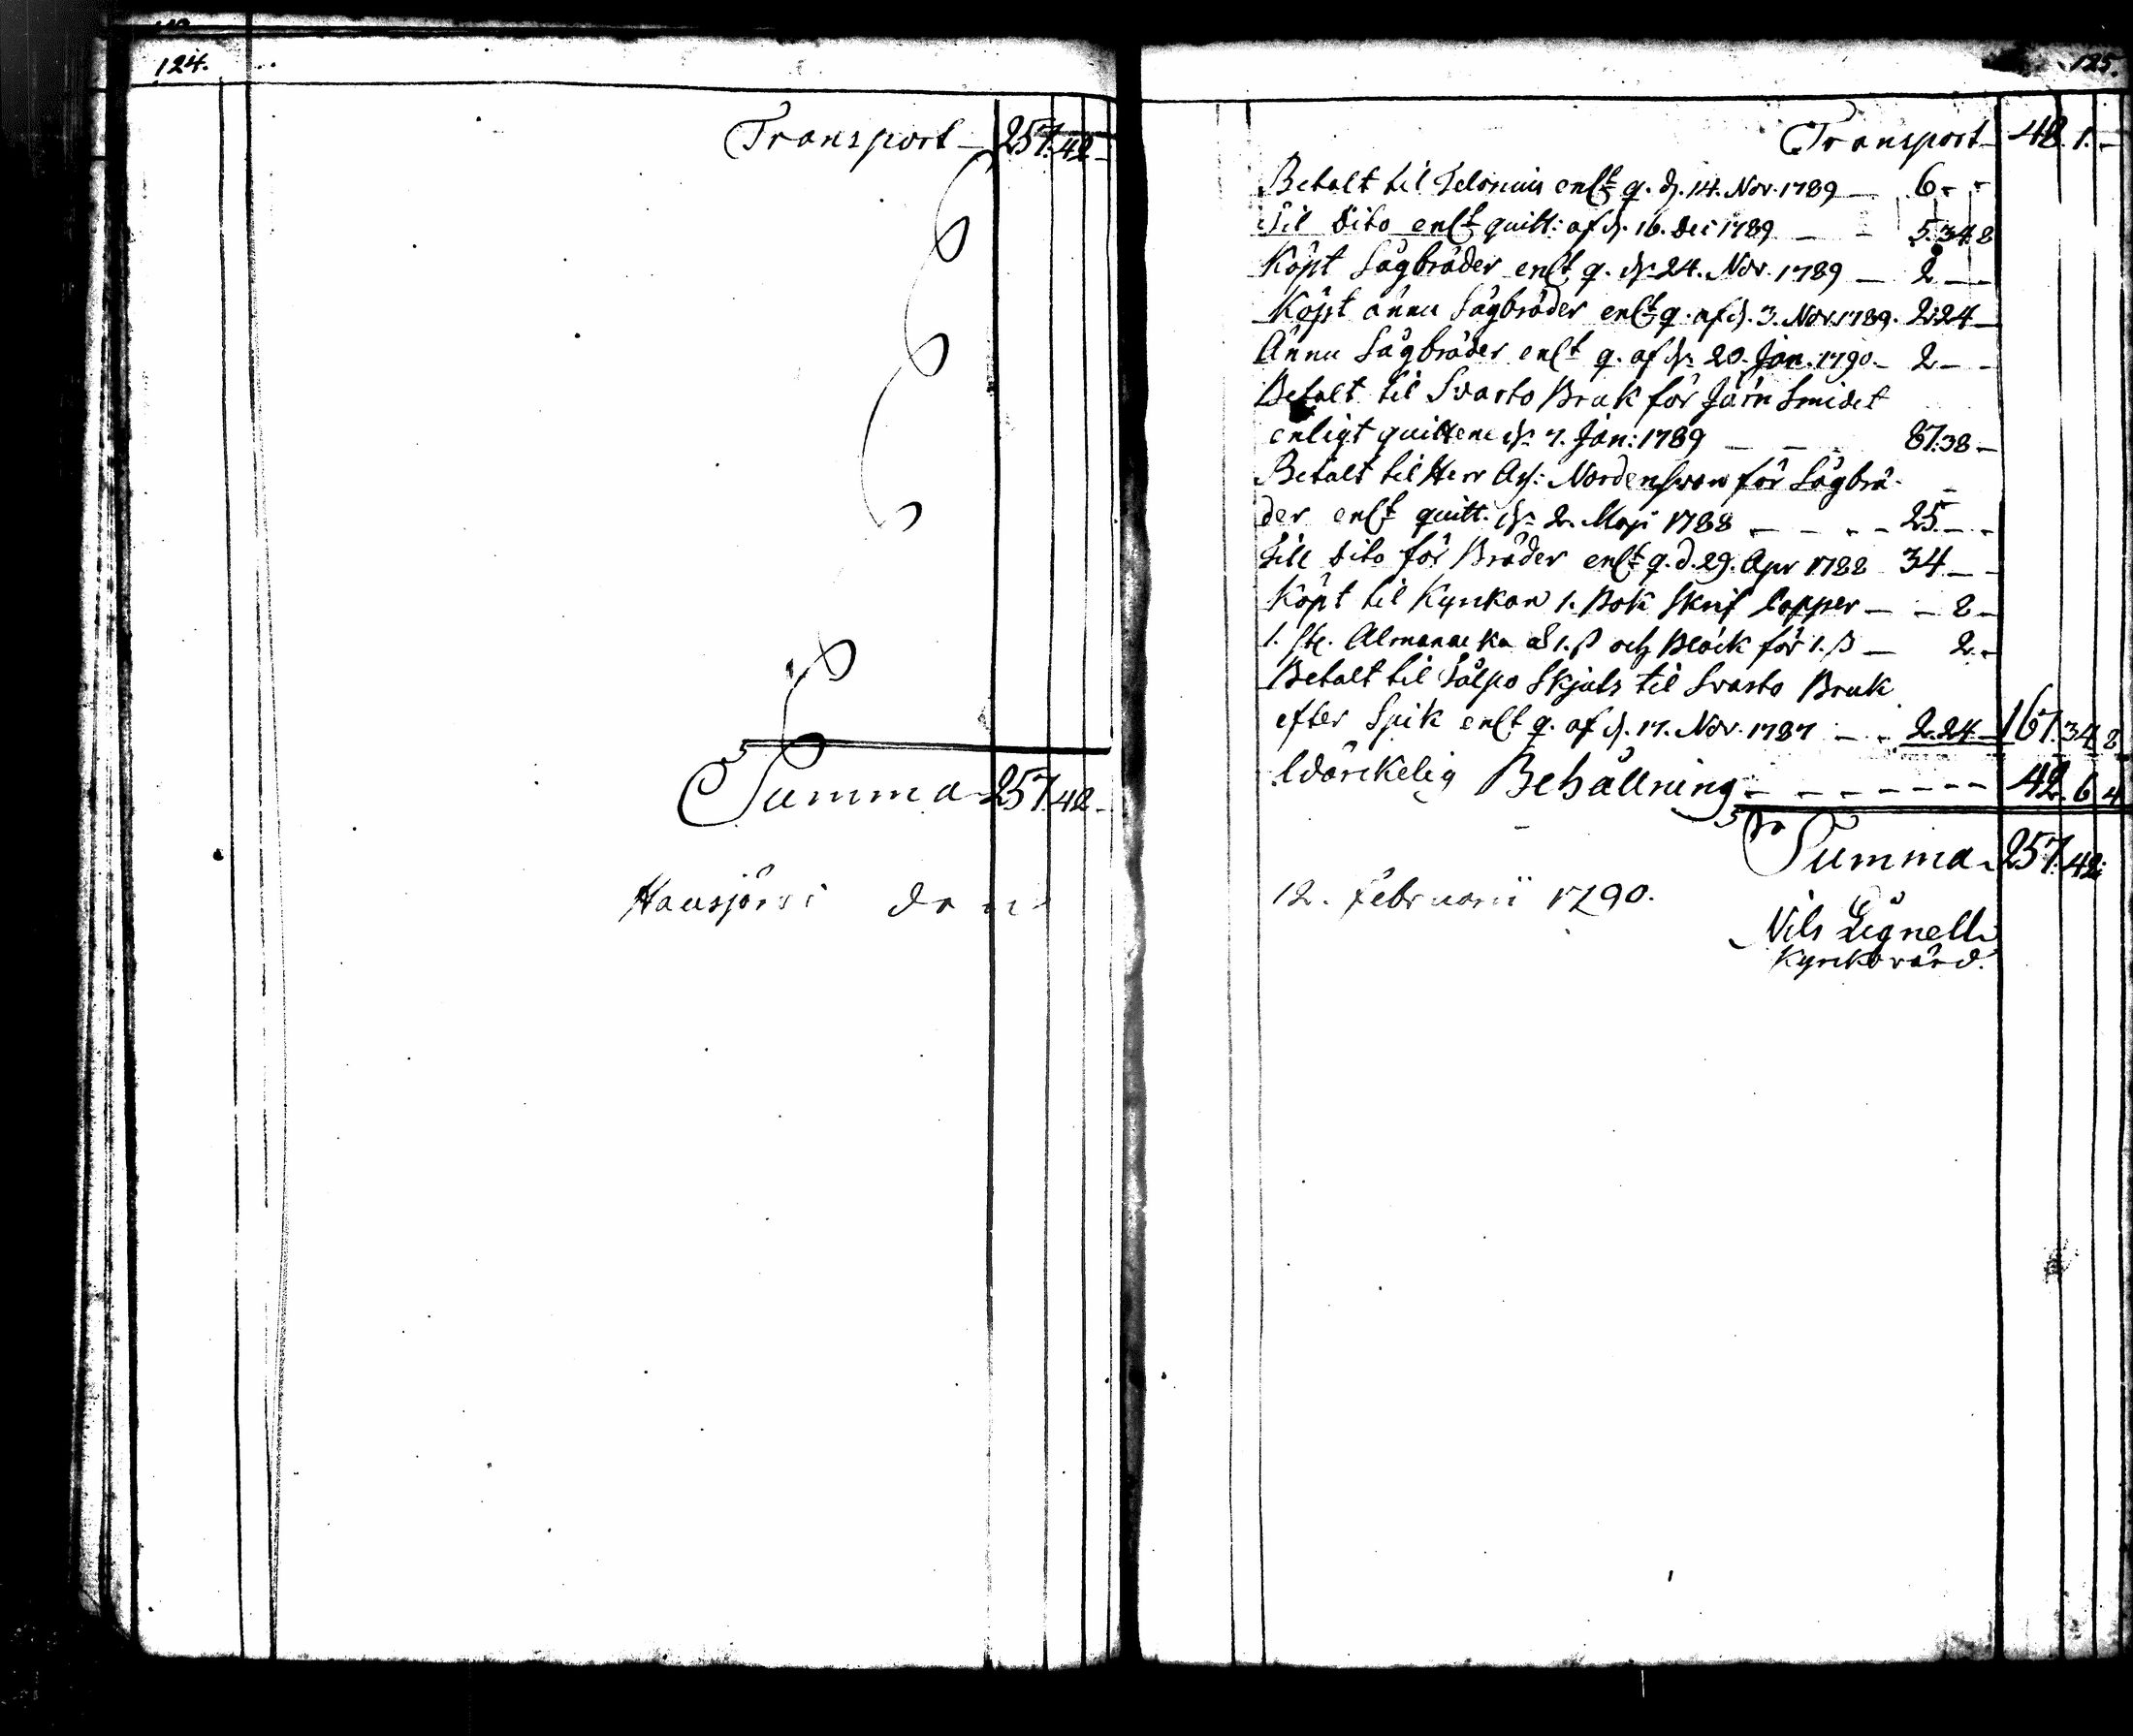 124.
Transport - 257. 42 -
Summa - 257. 42 -
Hausjärvi den
125.
Transport - 48. 1. -
Betalt til Selonius enl:t q. d. 14. Nov. 1789 - 6. - -
Til dito enl:t quitt: af d. 16. Dec 1789 - - 5. 34. 8
Köpt Sågbräder enl:t q. d. 24. Nov. 1789 - 2 - -
Köpt ännu Sågbräder enl:t q. af d. 3. Nov. 1789. 2. 24 -
Ännu Sågbräder enl:t q. af d. 20. Jan. 1790. - 2 - -
Betalt til Svarto Bruk för Järn Smidet
enligt quittence d. 7. Jan: 1789 - - - 87. 38 -
Betalt til Herr Nordenswan för Sågbrä-
der enl:t quitt. d. 2. Maji 1788 - - - - 25. - -
Till dito för Bräder enl:t q. d. 29. Apr 1788 34 - -
Köpt til Kyrkan 1. Bok Skrif Papper - - 8 -
1. st. Almanacka à 1. ß och Bläck för 1. ß - 2. -
Betalt til Sälpo Skjuts til Svarto Bruk
efter Spik enl:t q. af d. 17. Nov. 1787 - - 2. 24 - 167. 34. 8
Wärckelig Behållning - - - - - - - 42. 6. 4
Summa - 257. 42.
12. Februarii 1790.
Nils Lignell
Kyrkovärd.